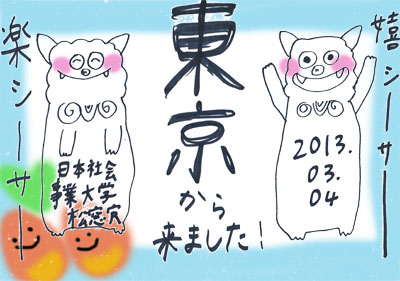 嬉シーサー
2013.
03.
04
東京
から
来ました！
楽シーサー
日本社会
事業大学